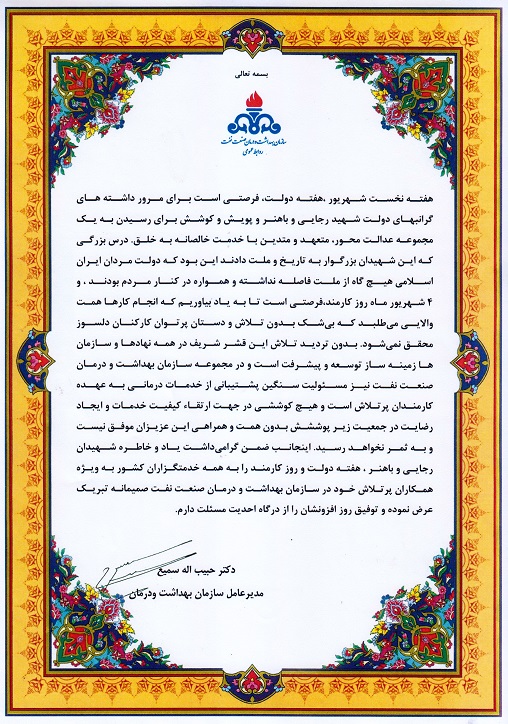 بسمه تعالی
سازمان بهداشت و درمان صنعت نفت
روابط عمومی
هفته نخست شهریور ،هفته دولت، فرصتی است برای مرور داشته های
گرانبهای دولت شهید رجایی و باهنر و پویش و کوشش برای رسیدن به یک
مجموعه عدالت محور، متعهد و متدین با خدمت خالصانه به خلق. درس بزرگی
که این شهیدان بزرگوار به تاریخ و ملت دادند این بود که دولت مردان ایران
اسلامی هیچ گاه از ملت فاصله نداشته و همواره در کنار مردم بودند، و
۴ شهریور ماه روز کارمند،فرصتی است تا به یاد بیاوریم که انجام کارها همت
والایی می‌طلبد که بی‌شک بدون تلاش و دستان پرتوان کارکنان دلسوز
محقق نمی‌شود. بدون تردید تلاش این قشر شریف در همه نهادها و سازمان
ها زمینه ساز توسعه و پیشرفت است و در مجموعه سازمان بهداشت و درمان
صنعت نفت نیز مسئولیت سنگین پشتیبانی از خدمات درمانی به عهده
کارمندان پرتلاش است و هیچ کوششی در جهت ارتقاء کیفیت خدمات و ایجاد
رضایت در جمعیت زیر پوشش بدون همت و همراهی این عزیزان موفق نیست
و به ثمر نخواهد رسید. اینجانب ضمن گرامی‌داشت یاد و خاطره شهیدان
رجایی و باهنر ، هفته دولت و روز کارمند را به همه خدمتگزاران کشور به ویژه
همکاران پرتلاش خود در سازمان بهداشت و درمان صنعت نفت صمیمانه تبریک
عرض نموده و توفیق روز افزونشان را از درگاه احدیت مسئلت دارم.
دکتر حبیب اله سمیع
مدیرعامل سازمان بهداشت ودرمان